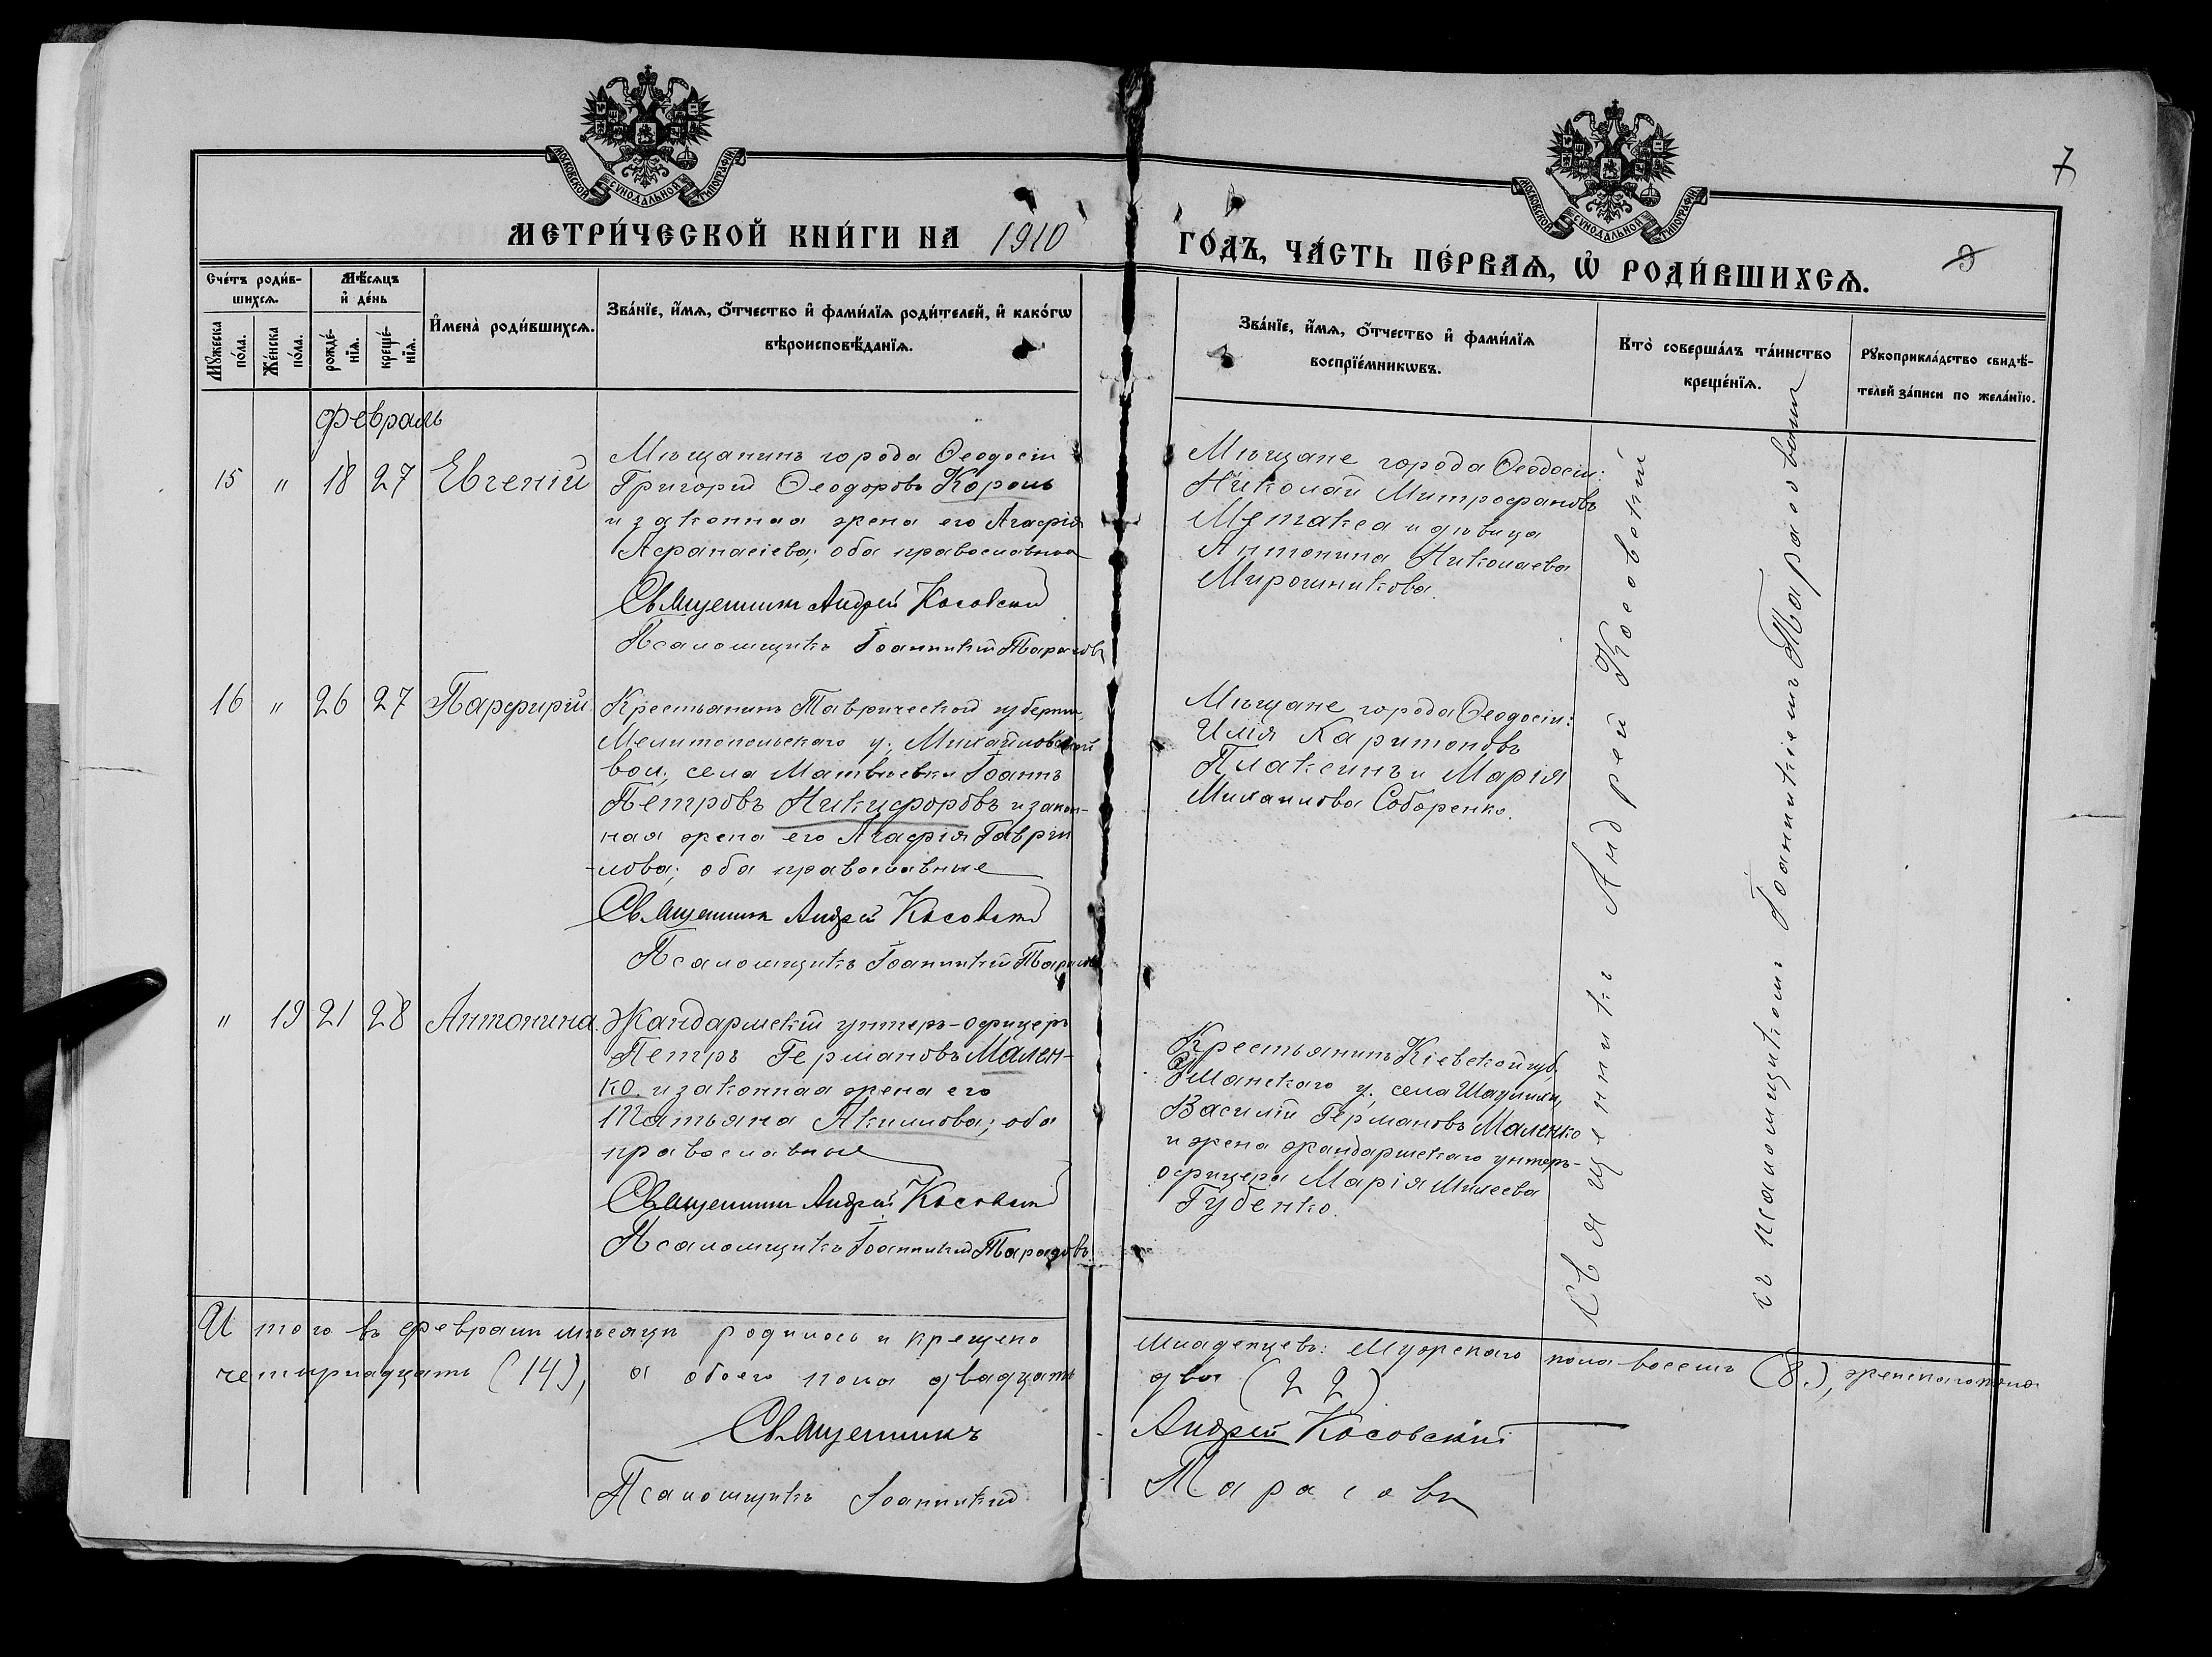 7
МОСКОВСКОЙ СѴНОДАЛЬНОЙ ТИПОГРАФІИ
МОСКОВСКОЙ СѴНОДАЛЬНОЙ ТИПОГРАФІИ
МЕТРИ́ЧЕСКОЙ КНИ́ГИ НА 1910 ГО́ДЪ, ЧА́СТЬ ПЕ́РВАѦ, Ѡ҆ РОДИ́ВШИХСѦ.
Сче́тъ роди́в-
шихсѧ.
Мꙋ́жеска по́ла.
Же́нска по́ла.
Мѣ́сѧцъ и҆ де́нь
рожде́-
нїѧ.
креще́-
нїѧ.
И҆мена̀ роди́вшихсѧ.
Зва́нїе, и҆́мѧ, ѻ҆́тчество и҆ фами́лїѧ роди́телей, и҆ како́гѡ
вѣроисповѣ́данїѧ.
Зва́нїе, и҆́мѧ, ѻ҆́тчество и҆ фами́лїѧ
воспрїе́мникѡвъ.
Кто̀ соверша́лъ та́инство
креще́нїѧ.
Рꙋкоприкла́дство свидѣ́-
телей за́писи по жела́нїю.
Февраль
15 " 18 27 Евгеній
Мѣщанинъ города Ѳеодосіи
Григорій Ѳеодоровъ Король
и законная жена его Агафія
Афанасіева; оба православные
Священникъ Андрей Косовскій
Псаломщикъ Іоанникій Тарасовъ
Мѣщане города Ѳеодосіи:
Николай Митрофановъ
Метакса и дѣвица
Антонина Николаева
Мирошникова.
16 " 26 27 Парфирій
Крестьянинъ Таврической губерніи,
Мелитопольскаго у. Михайловской
вол. села Матвѣевки Іоаннъ
Петровъ Никифоровъ и закон-
ная жена его Агафія Гаври-
лова; оба православные
Священникъ Андрей Косовскій
Псаломщикъ Іоанникій Тарасовъ
Мѣщане города Ѳеодосіи:
Илія Харитоновъ
Плаксинъ и Марія
Михаилова Соборенко.
" 19 21 28 Антонина.
Жандармскій унтеръ-офицеръ
Петръ Германовъ Мален-
ко. и законная жена его
Татьяна Акимова; оба
православные
Священникъ Андрей Косовскій
Псаломщикъ Іоанникій Тарасовъ
Крестьянинъ Кіевской губ.
Уманскаго у., села
Василій Германовъ Маленко
и жена жандармскаго унтеръ-
офицера Марія
Губенко.
Священникъ Андрей Косовскій
съ псаломщикомъ Іоанникіемъ Тарасовымъ
Итого въ февралѣ мѣсяцѣ родилось и крещено младенцевъ: Мужскаго пола восемь (8.), женскаго пола
четырнадцать (14), а обоего пола двадцать два (22)
Священникъ Андрей Косовскій
Псаломщикъ Іоанникій Тарасовъ